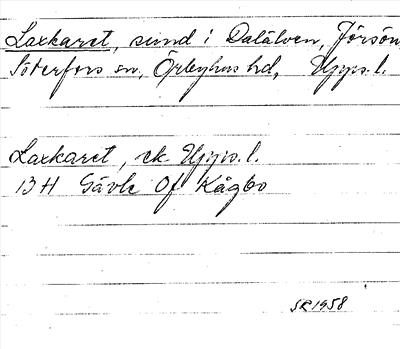 Laxkaret, sund i Dalälven, Jörsön,
Söderfors sn, Örbyhus hd, Upps. l.
Laxkaret, ek Upps. l.
13 H Gävle Of Kågbo
SR 1958